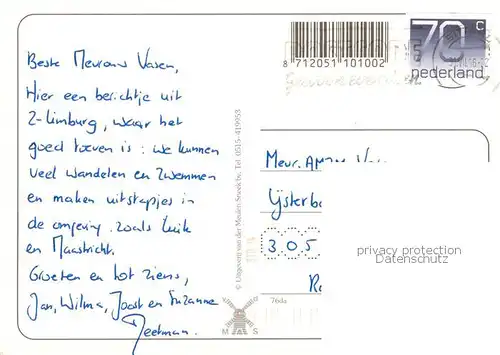 Beste Mevrouw Vasen,
Hier een berichtje uit
Z-Limburg, waar het
goed toeven is: we kunnen
veel wandelen en zwemmen
en maken uitstapjes in
de omgeving zoals Luik
en Maastricht.
Groeten en tot ziens,
Jan, Wilma, Joost en Suzanne
© Uitgeverij van der Meulen, Sneek bv, Tel. 0515-419953
8 712051 101002
70 c
nederland
Mevr.
IJsterb
3.0.5
privacy protection
Datenschutz
M S